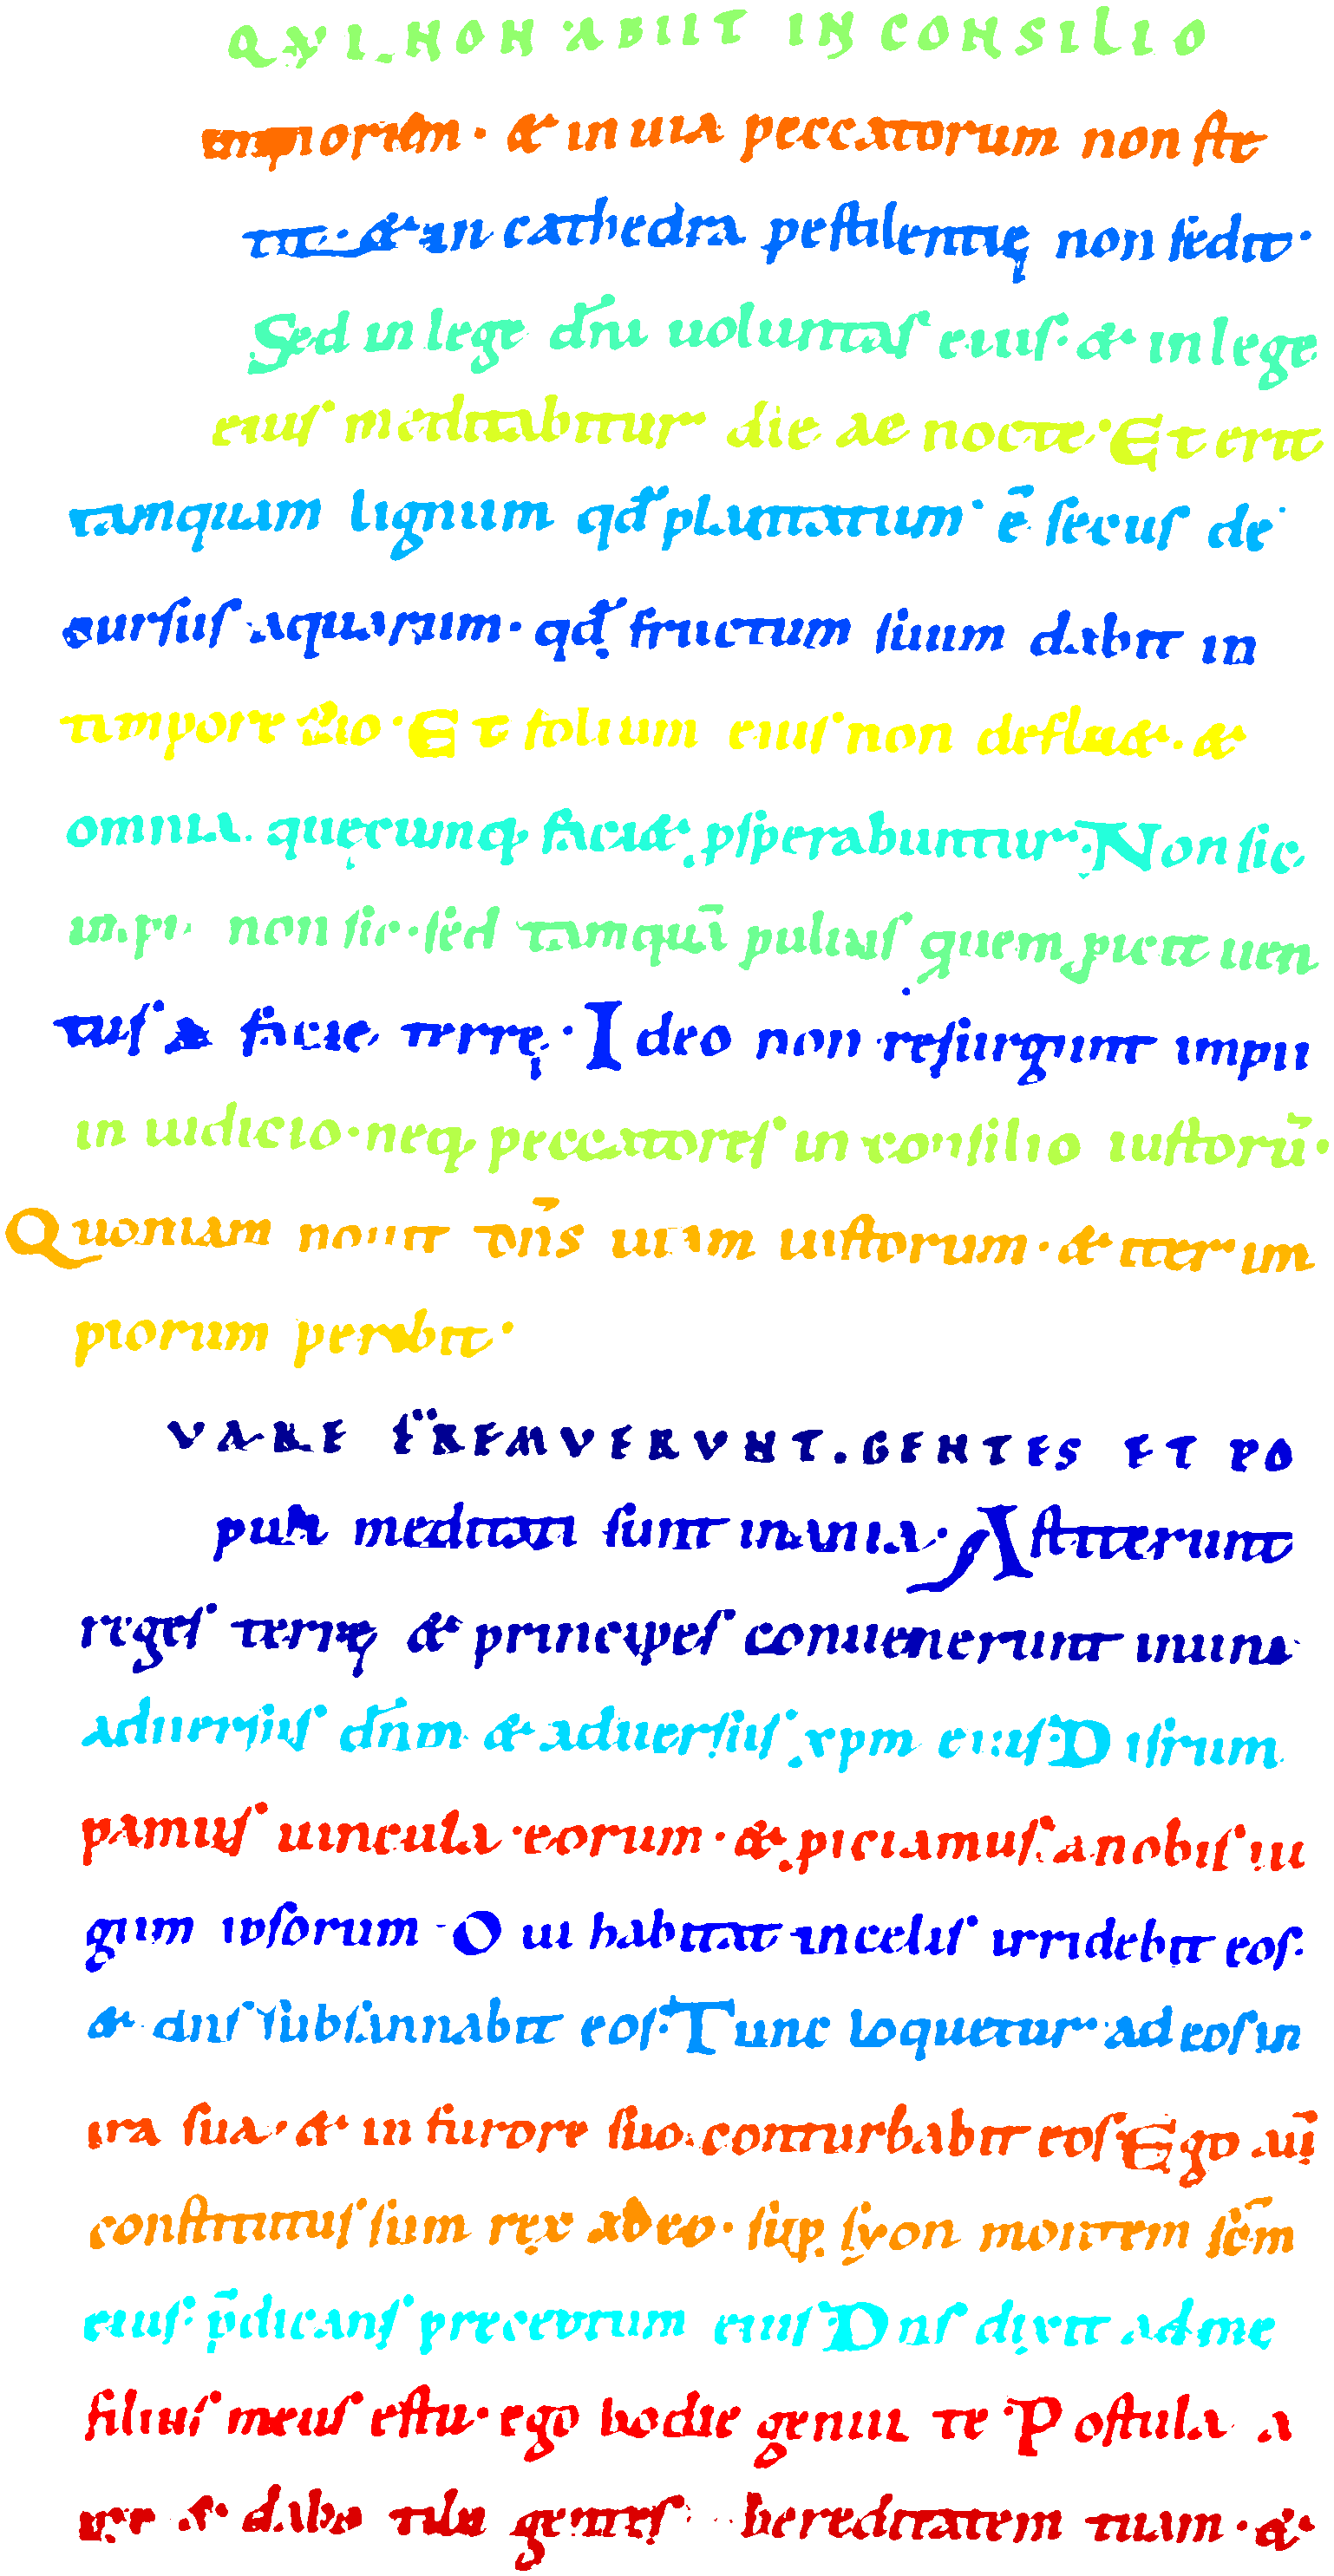 QVI NON ABIIT IN CONSILIO
impiorum · & in uia peccatorum non ste
tit · & in cathedra pestilentię non sedit ·
Sed in lege dñi uoluntas eius · & in lege
eius meditabitur die ac nocte · Et erit
tamquam lignum qđ plantatum ē secus de
cursus aquarum · qđ fructum suum dabit in
tempore suo · Et folium eius non defluet · &
omnia quęcumq; faci& psperabuntur · Non sic
impii non sic · sed tamquā puluis quem picit uen
tus a facie terrę · Ideo non resurgunt impii
in iudicio · neq; peccatores in consilio iustorū ·
Quoniam nouit dñs uiam iustorum · & iter im
piorum peribit ·
VARE FREMVERVNT · GENTES ET PO
puli meditati sunt inania · Astiterunt
reges terrę & principes conuenerunt inunu
aduersus dñm & aduersus xpm eius · Disrum
pamus uincula eorum · & piciamus a nobis iu
gum ipsorum · Qui habitat in celis irridebit eos ·
& dns subsannabit eos · Tunc loquetur ad eos in
ira sua · & in furore suo conturbabit eos Ego aū
constitutus sum rex ab eo · sup syon montem scm̄
eius · p̄dicans preceptum eius Dns dixit ad me
filius meus es tu · ego hodie genui te · Postula a
me & dabo tibi gentes hereditatem tuam · &